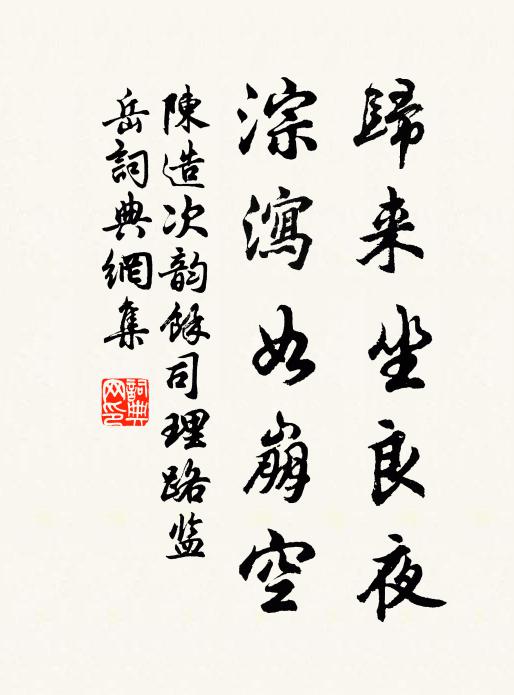 歸来坐良夜
淙瀉如崩空
陳造次韵餘司理路监
岳詞典網集
詞典
网印